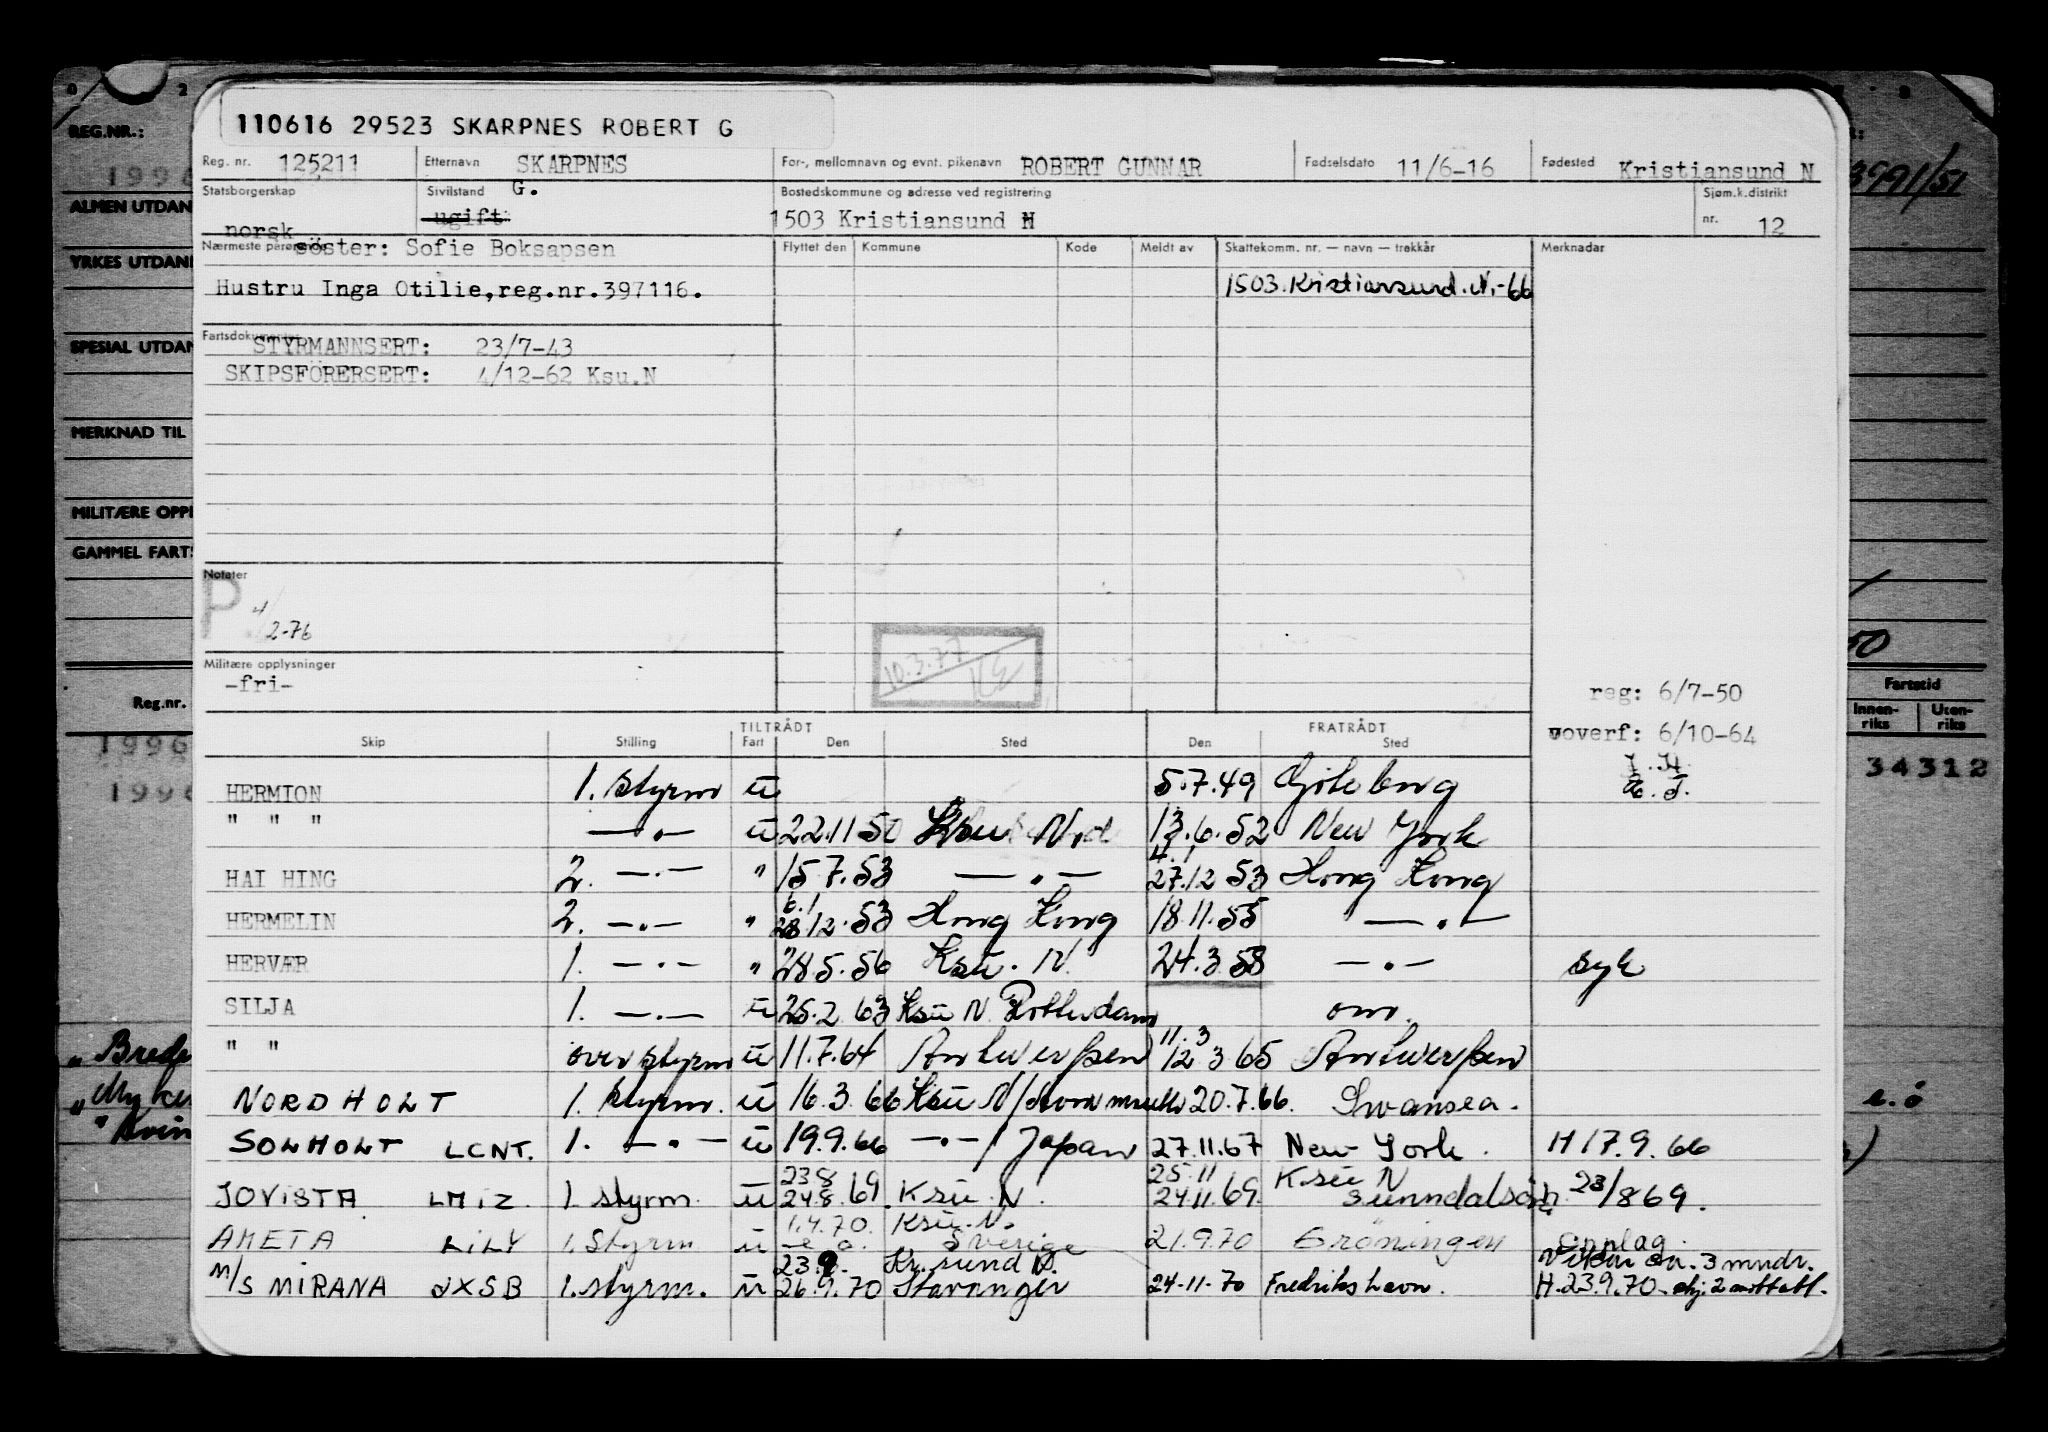 110616 29523 SKARPNES ROBERT G
Reg. nr. 125211 Etternavn SKARPNES For-, mellomnavn og evnt. pikenavn ROBERT GUNNAR Fødselsdato 11/6-16 Fødested Kristiansund N
Statsborgerskap norsk Sivilstand ugift G. Bostedskommune og adresse ved registrering 1503 Kristiansund N Sjøm.k.distrikt nr. 12
Nærmeste pårørende söster: Sofie Boksapsen Flyttet den Kommune Kode Meldt av Skattekomm. nr. — navn — trekkår Merknader
Hustru Inga Otilie,reg.nr.397116. 1503. Kristiansund. N.-66
Fartsdokumenter
STYRMANNSERT: 23/7-43
SKIPSFÖRERSERT: 4/12-62 Ksu.N
Notater
P 4/2-76
10.3.77
Militære opplysninger
-fri-
reg: 6/7-50
overf: 6/10-64
TILTRÅDT FRATRÅDT
Skip Stilling Fart Den Sted Den Sted
HERMION 1. styrm u 5.7.49 Göteborg
" " " —"— u 22.11 50 Ksu N. 13.6.52 New York
HAI HING 2. —"— " 15 7.53 —"— 4.1 27.12 53 Hong Kong
HERMELIN 2. —"— " 6.1 28.12.53 Hong Kong 18.11.55 —"—
HERVÆR 1. —"— " 28.5.56 Ksu. N. 24.3.58 —"— syk
SILJA 1. —"— u 25.2 63 Ksu N. Rotterdam omr.
" " overstyrm u 11.7.64 Antwerpen 11.3 12.3 65 Antwerpen
NORDHOLT 1. styrm. u 16.3.66 Ksu N/ 20.7.66. Swansea.
SOLHOLT LCNT. 1. —"— u 19.9.66 —"—/Japan 27.11.67 New York. H 17.9.66
JOVISTA LMIZ 1. styrm u 23 8 24.8.69. Ksu. N. 25.11 24.11.69. Ksu N Sunndalsöra 23/869.
AMETA LILY 1. Styrm u 1.4.70. Ksu. N. Sverige 21.9.70 Gröningen Opplag.
Vikar ca. 3 mndr.
M/S MIRANA LXSB 1. styrm. u 23.9. 26.9.70 Kr.sund N. Stavanger 24-11-70 Fredrikshavn. H. 23.9.70.
REG.NR.:
1996
ALMEN UTDAN
YRKES UTDANN
SPESIAL UTDAN
MERKNAD TIL
MILITÆRE OPPL
GAMMEL FARTS
Reg.nr.
1996
1996
3991/51
50
Fartstid
Innen-riks Uten-riks
34312